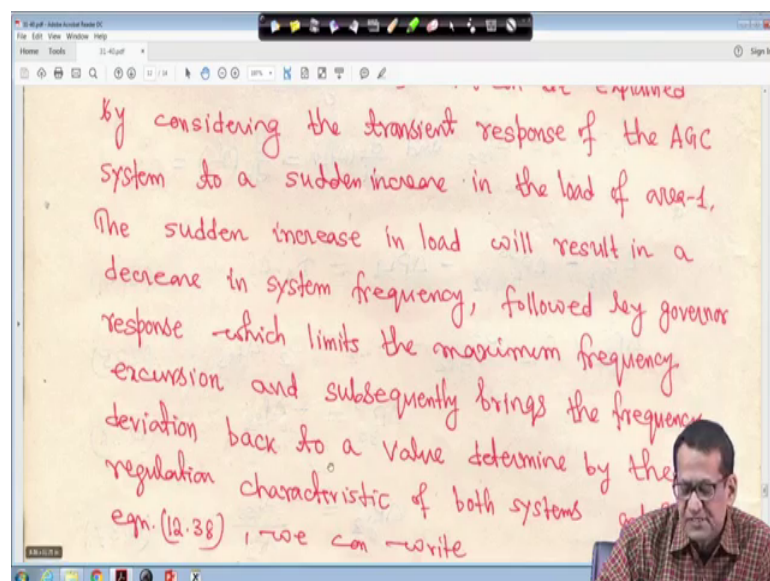 31-40.pdf - Adobe Acrobat Reader DC
File Edit View Window Help
Home Tools 31-40.pdf × Sign In
12 / 14
By considering the transient response of the AGC
system to a sudden increase in the load of area-1.
The sudden increase in load will result in a
decrease in system frequency, followed by governor
response which limits the maximum frequency
excursion and subsequently brings the frequency
deviation back to a value determine by the
regulation characteristic of both systems
eqn. (12.38) , we can write